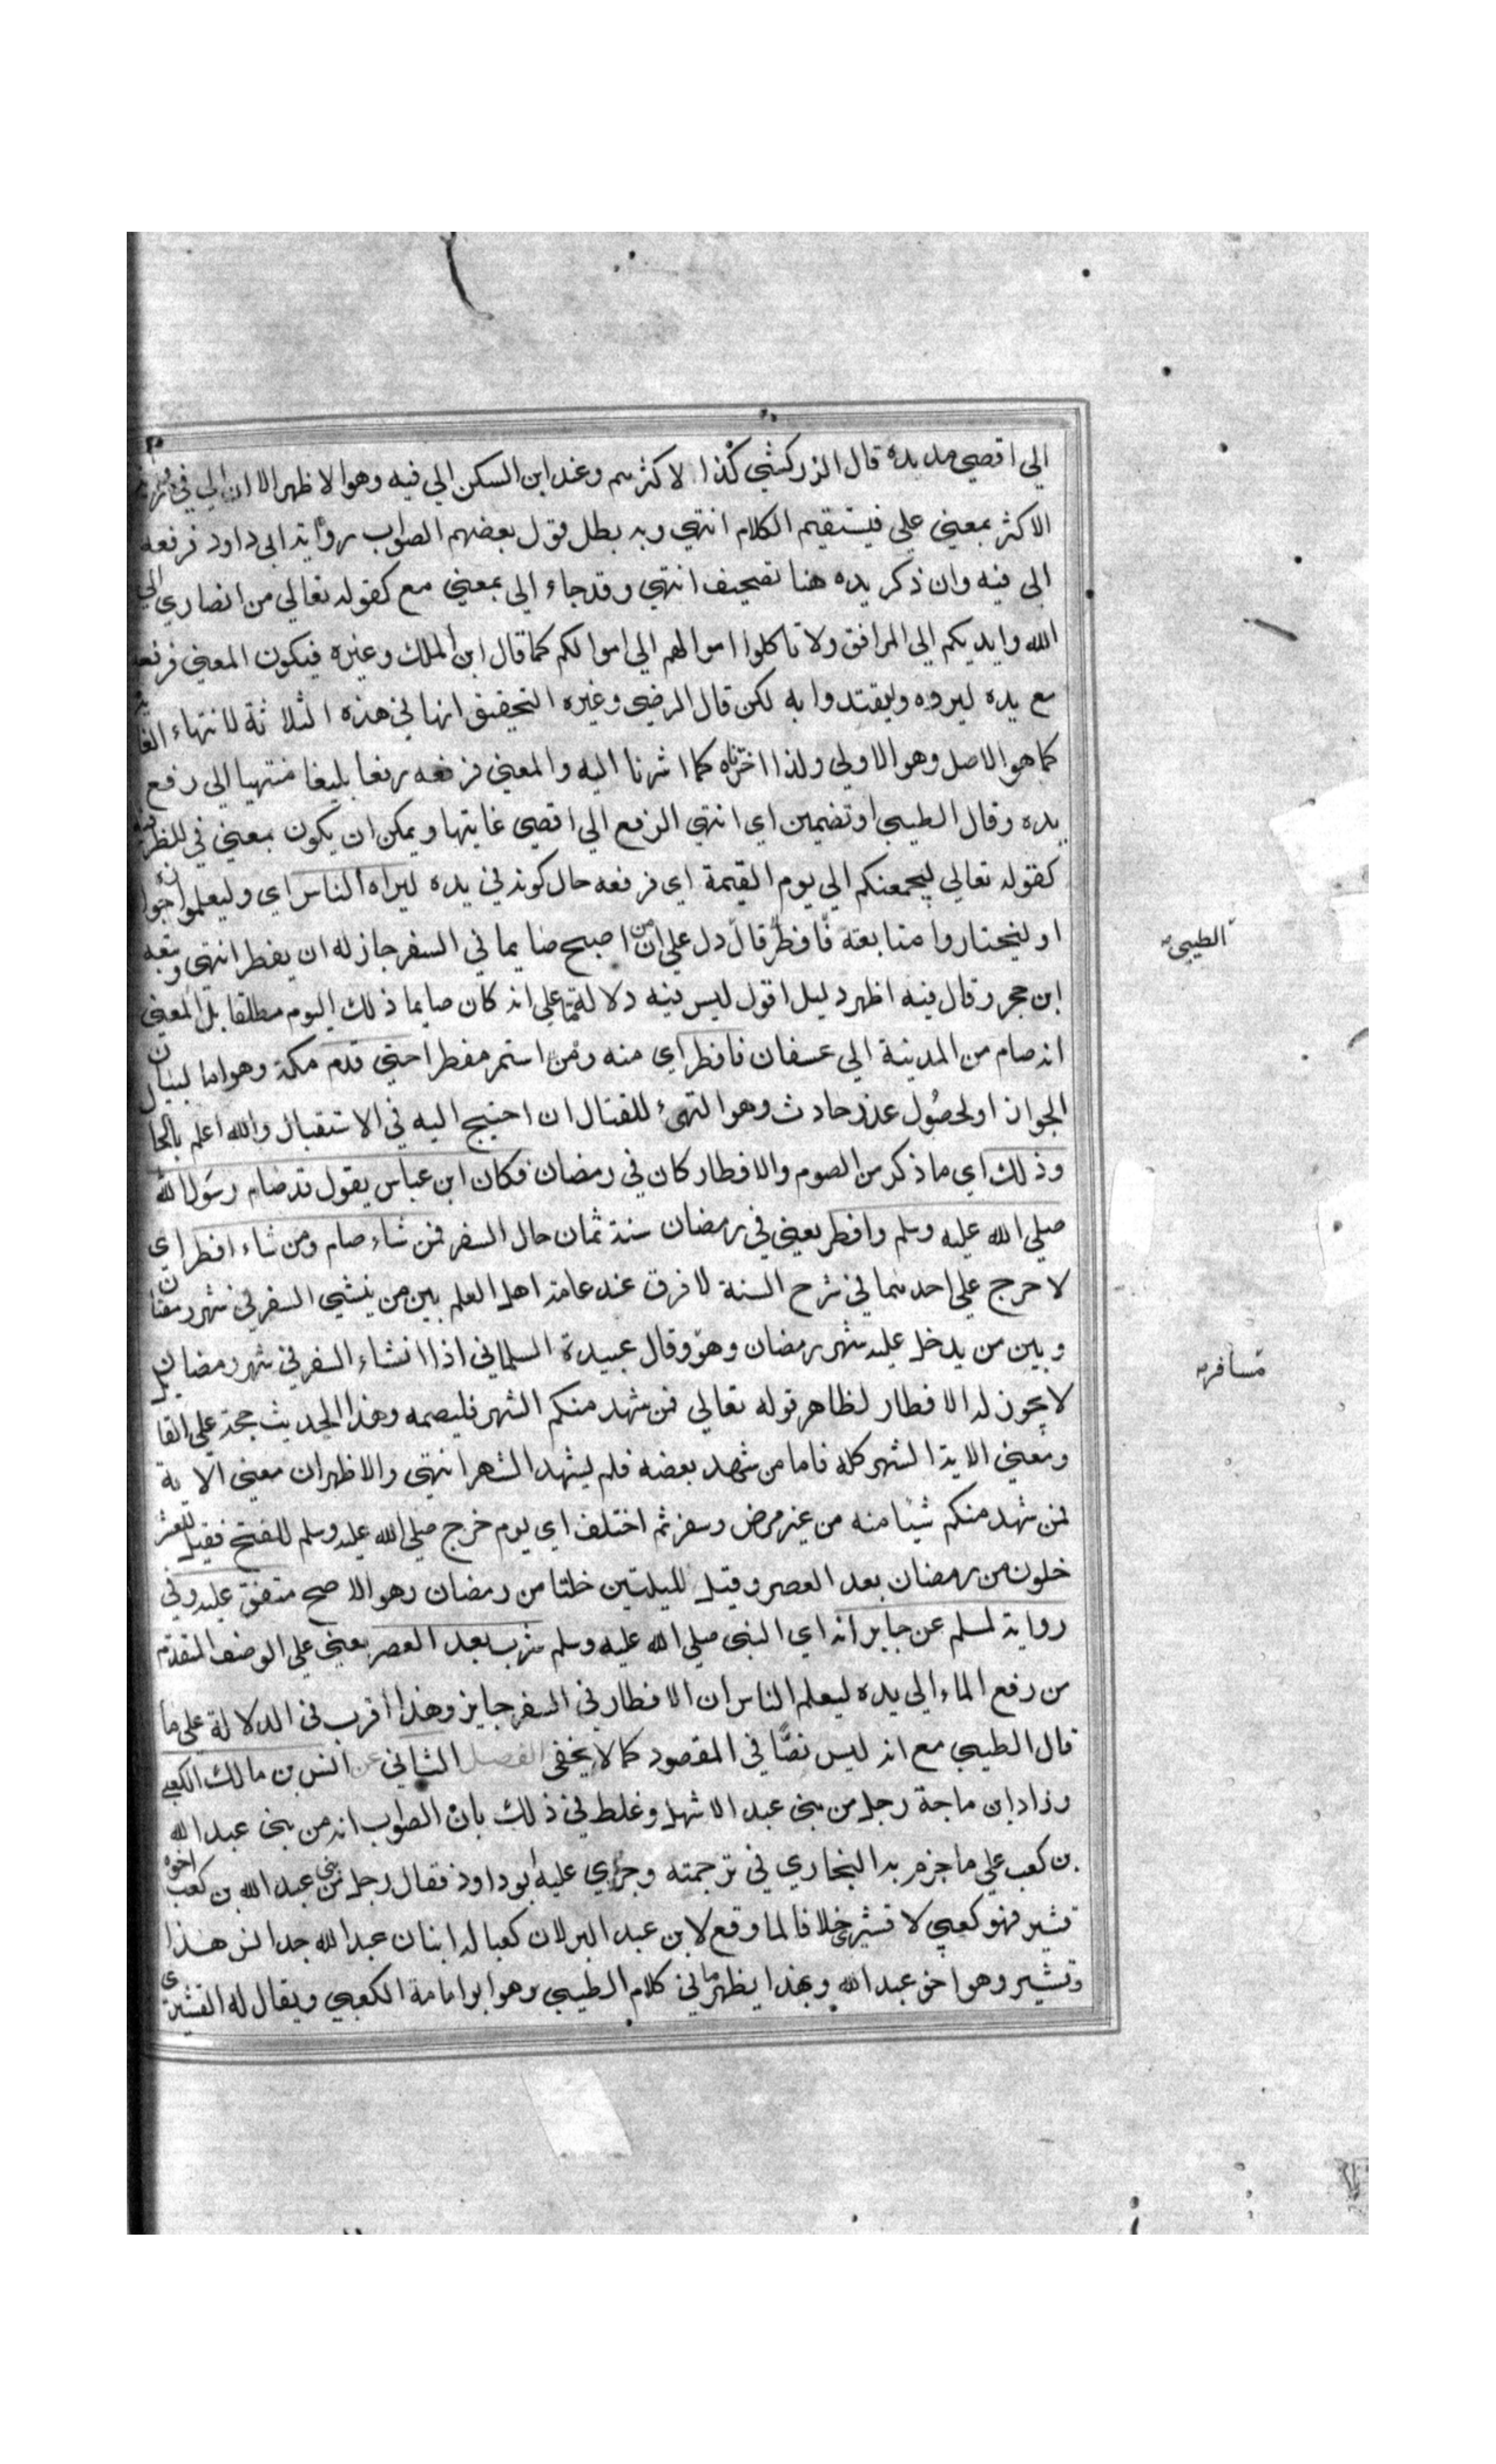 الي اقصي مد يده قال الزركشي كذا لاكثرهم وعند ابن السكن الي فيه وهو الاظهر الا ان الي في
الاكثر بمعني علي فيستقيم الكلام انتهي وبه بطل قول بعضهم الصواب رواية ابي داود فرفعه
الي فيه وان ذكر يده هنا تصحيف انتهي وقد جاء الي بمعني مع كقوله تعالي من انصاري الي
الله وايديكم الي المرافق ولا تاكلوا اموالهم الي اموالكم كما قال ابن الملك وغيره فيكون المعني فرفعه
مع يده ليروه وليقتدوا به لكن قال الرضي وغيره التحقيق انها في هذه الثلاثة للانتهاء
كما هو الاصل وهو الاولي ولذا اخترناه كما اشرنا اليه والمعني فرفعه رفعا بليغا منتهيا الي رفع
يده وقال الطيبي او تضمين اي انتهي الرفع الي اقصي غايتها ويمكن ان يكون بمعني في للظرفية
كقوله تعالي ليجمعنكم الي يوم القيمة اي فرفعه حال كونه في يده ليراه الناس اي وليعلموا جوازه
او ليختاروا متابعته فافطر قال دل علي ان من اصبح صايما في السفر جاز له ان يفطر انتهي وتبعه
الطيبي
ابن حجر وقال فيه اظهر دليل اقول ليس فيه دلالة علي انه كان صايما ذلك اليوم مطلقا بل المعني
انه صام من المدينة الي عسفان فافطر اي منه ومن استمر مفطرا حتي قدم مكة وهو اما لبيان
الجواز او لحصول عذر حادث وهو التهيء للقتال ان احتيج اليه في الاستقبال والله اعلم بالحا
وذلك اي ما ذكر من الصوم والافطار كان في رمضان فكان ابن عباس يقول قد صام رسول الله
صلي الله عليه وسلم وافطر يعني في رمضان سنة ثمان حال السفر فمن شاء صام ومن شاء افطر اي
لا حرج علي احدهما في شرح السنة لا فرق عند عامة اهل العلم بين من ينشي السفر في شهر رمضان
وبين من يدخل عليه شهر رمضان وهو وقال عبيدة السلماني اذا انشاء السفر في شهر رمضان
مسافر
لا يجوز له الافطار لظاهر قوله تعالي فمن شهد منكم الشهر فليصمه وهذا الحديث حجة علي القا
ومعني الاية الشهر كله فاما من شهد بعضه فلم يشهد الشهر انتهي والاظهر ان معني الاية
فمن شهد منكم شيئا منه من غير مرض وسفر ثم اختلف اي يوم خرج صلي الله عليه وسلم للفتح فقيل لعشر
خلون من رمضان بعد العصر وقيل لليلتين خلتا من رمضان وهو الاصح متفق عليه وفي
رواية لمسلم عن جابر انه اي النبي صلي الله عليه وسلم شرب بعد العصر يعني علي الوصف المتقدم
من رفع الماء الي يده ليعلم الناس ان الافطار في السفر جايز وهذا اقرب في الدلالة علي ما
قال الطيبي مع انه ليس نصا في المقصود كما لا يخفي الفصل الثاني عن انس بن مالك الكعبي
وزاد ابن ماجة رجل من بني عبد الاشهل وغلط في ذلك بان الصواب انه من بني عبد الله
بن كعب علي ما جزم به البخاري في ترجمته وجري عليه ابو داود فقال رجل من بني عبد الله بن كعب اخوة
قشير فهو كعبي لا قشيري خلافا لما وقع لابن عبد البر لان كعبا له ابنان عبد الله جد انس هذا
وقشير وهو اخو عبد الله وبهذا يظهر ما في كلام الطيبي وهو ابو امامة الكعبي ويقال له القشيري